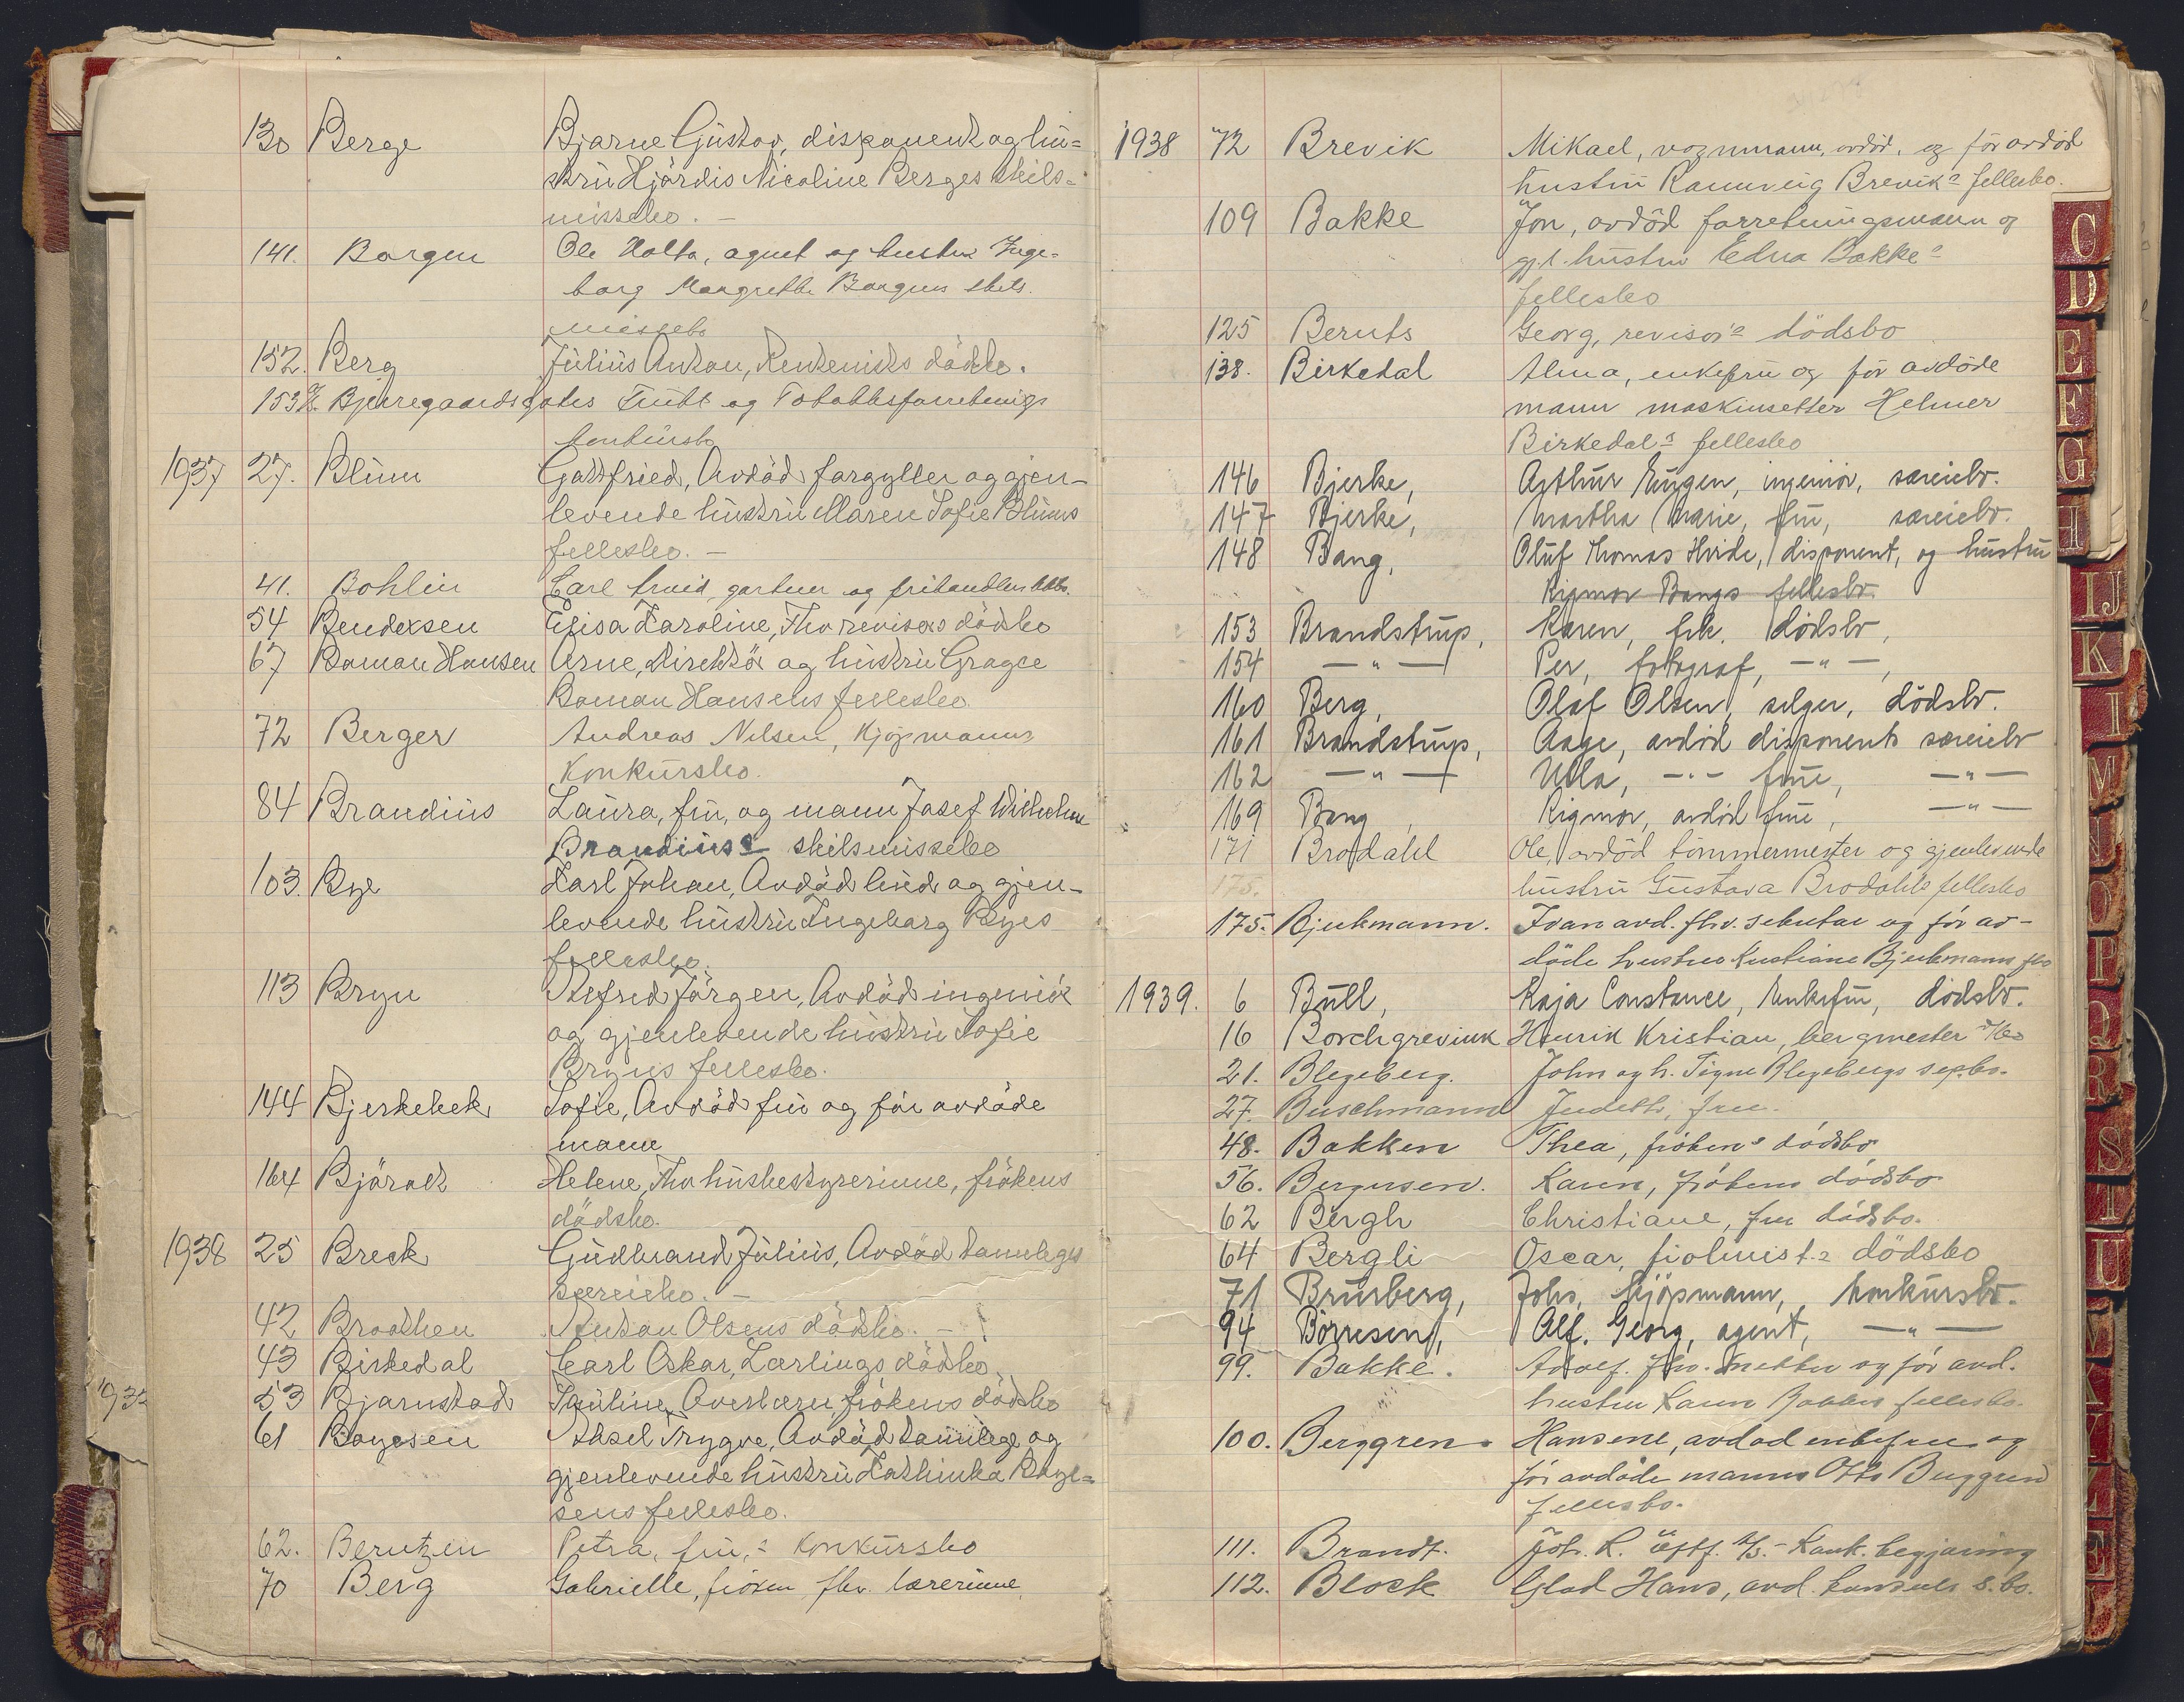 130 Berge Bjarne Gustav, disponent og hu=
stru Hjördis Nicoline Berges skils=
missebo. —
141. Borgen Ole Holta, agent og hustru Inge=
borg Margrethe Borgens skils.
missebo
152. Berg Julius Anton, Rentenists dödsbo.
153 Bjerregaardsgates Frukt og Tobakksforretnings
konkursbo
1937 27. Blum Gottfried, Avdöd forgyller og gjen-
levende hustru Maren Sofie Blums
fellesbo. —
41. Bohlin Carl gartner og frihandler
54 Bendixsen Elisa Karoline, Fhv revisors dödsbo
67 Boman Hansen Arne, Direktör og hustru Gragce
Boman Hansens fellesbo.
72 Berger Andreas Nilsen, Kjöpmanns
Konkursbo.
84 Brandius Laura, fru, og mann Josef Wilhelm
Brandius's skilsmissebo
103. Bye Karl Johan, Avdöd og gjen-
levende hustru Ingeborg Byes
fellesbo.
113 Bryn Alfred Jörgen, Avdöd ingeniör
og gjenlevende hustru Sofie
Bryns fellesbo.
144 Bjerkebek Sofie, Avdöd fru og för avdöde
mann
164 Björaek Helene, Fhv husbestyrerinne, frökens
dödsbo.
1938 25 Breck Gudbrand Julius, Avdöd tannleges
særeiebo. —
42 Braathen Anton Olsens dödsbo. —
43 Birkedal Carl Oskar, Lærlings dödsbo
1932 53 Bjarnstad Pauline, frökens dödsbo
61 Boyesen Aksel Trygve, Avdöd tannlege og
gjenlevende hustru Kathinka Boye=
sens fellesbo.
62. Berntzen Petra, fru,s konkursbo
70 Berg Gabrielle, fröken fhv. lærerinne,
1938 72 Brevik Mikael, vognmann, avdöd, og för avdöd
hustru Rannveig Brevik's fellesbo.
109 Bakke Jon, avdöd forretningsmann og
gj.l. hustru Edna Bakke's
fellesbo
125 Bernts Georg, revisor's dödsbo
138. Birkedal Alma, enkefru og för avdöde
mann maskinsetter Helmer
Birkedal's fellesbo
146 Bjerke, Arthur Eugen, ingeniör, særeiebo.
147 Bjerke, Martha Marie, fru, særeiebo.
148 Bang, Oluf Thomas Hvide, disponent, og hustru
Rigmor Bangs fellesbo.
153 Brandstrup, Karen, frk. dödsbo,
154 — " — Per, fotograf, — " —,
160 Berg, Olaf Olsen, selger, dödsbo.
161 Brandstrup, Aage, avdöd disponents særeiebo
162 — " — Ulla, — " — frue, — " —
169 Bang, Rigmor, avdöd frue, — " —
171 Brodahl Ole, avdöd tömmermester og gjenlevende
175. hustru Gustava Brodahls fellesbo
175. Bjerkmann. Ivan avd. fhv. sekretær og för av-
döde hustru Kristiane Bjerkmanns fbo
1939. 6 Bull, Kaja Constance, Enkefru, dödsbo.
16 Borchgrevink Henrik Kristian, bergmester
21. Blegeberg. John og h. Signe Blegebergs sepbo.
27. Buschmann Judeth, frue.
48. Bakken Thea, fröken's dödsbo
56. Bergersen. Karen, frökens dödsbo
62 Bergh Christiane, fru dödsbo.
64 Bergli Oscar, fiolinist.s dödsbo
71 Brurberg, Johs, kjöpmann, konkursbo.
94 Börresen, Alf. Georg, agent, — " —
99. Bakke. Adolf. fhv. og för avd.
hustru Karen Bakkes fellesbo.
100. Berggren. Hansine, avdöd enkefrue og
för avdöde manns Otto Berggren
fellesbo.
111. Brandt. Joh. R. Eftf. A/S.- Konk. begjæring
112. Block Glad Hans, avd. konsuls s.bo.
C
D
E
F
G
I
IJ
K
I
M
N
O
P
Q
R
S
T
U
V